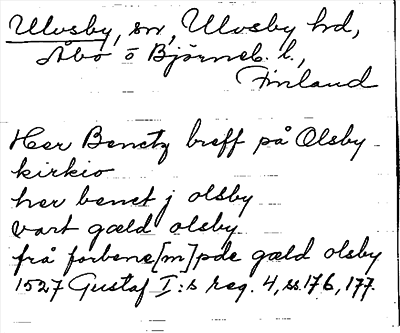 Ulvsby, sn, Ulvsby hd,
Åbo o Björneb. l.,
Finland
Her Bentz breff på Olsby
kirkio
her benct j olsby
vart gæld olsby
frå forbene[m]pde gæld olsby
1527 Gustaf I:s reg. 4, ss. 176, 177.